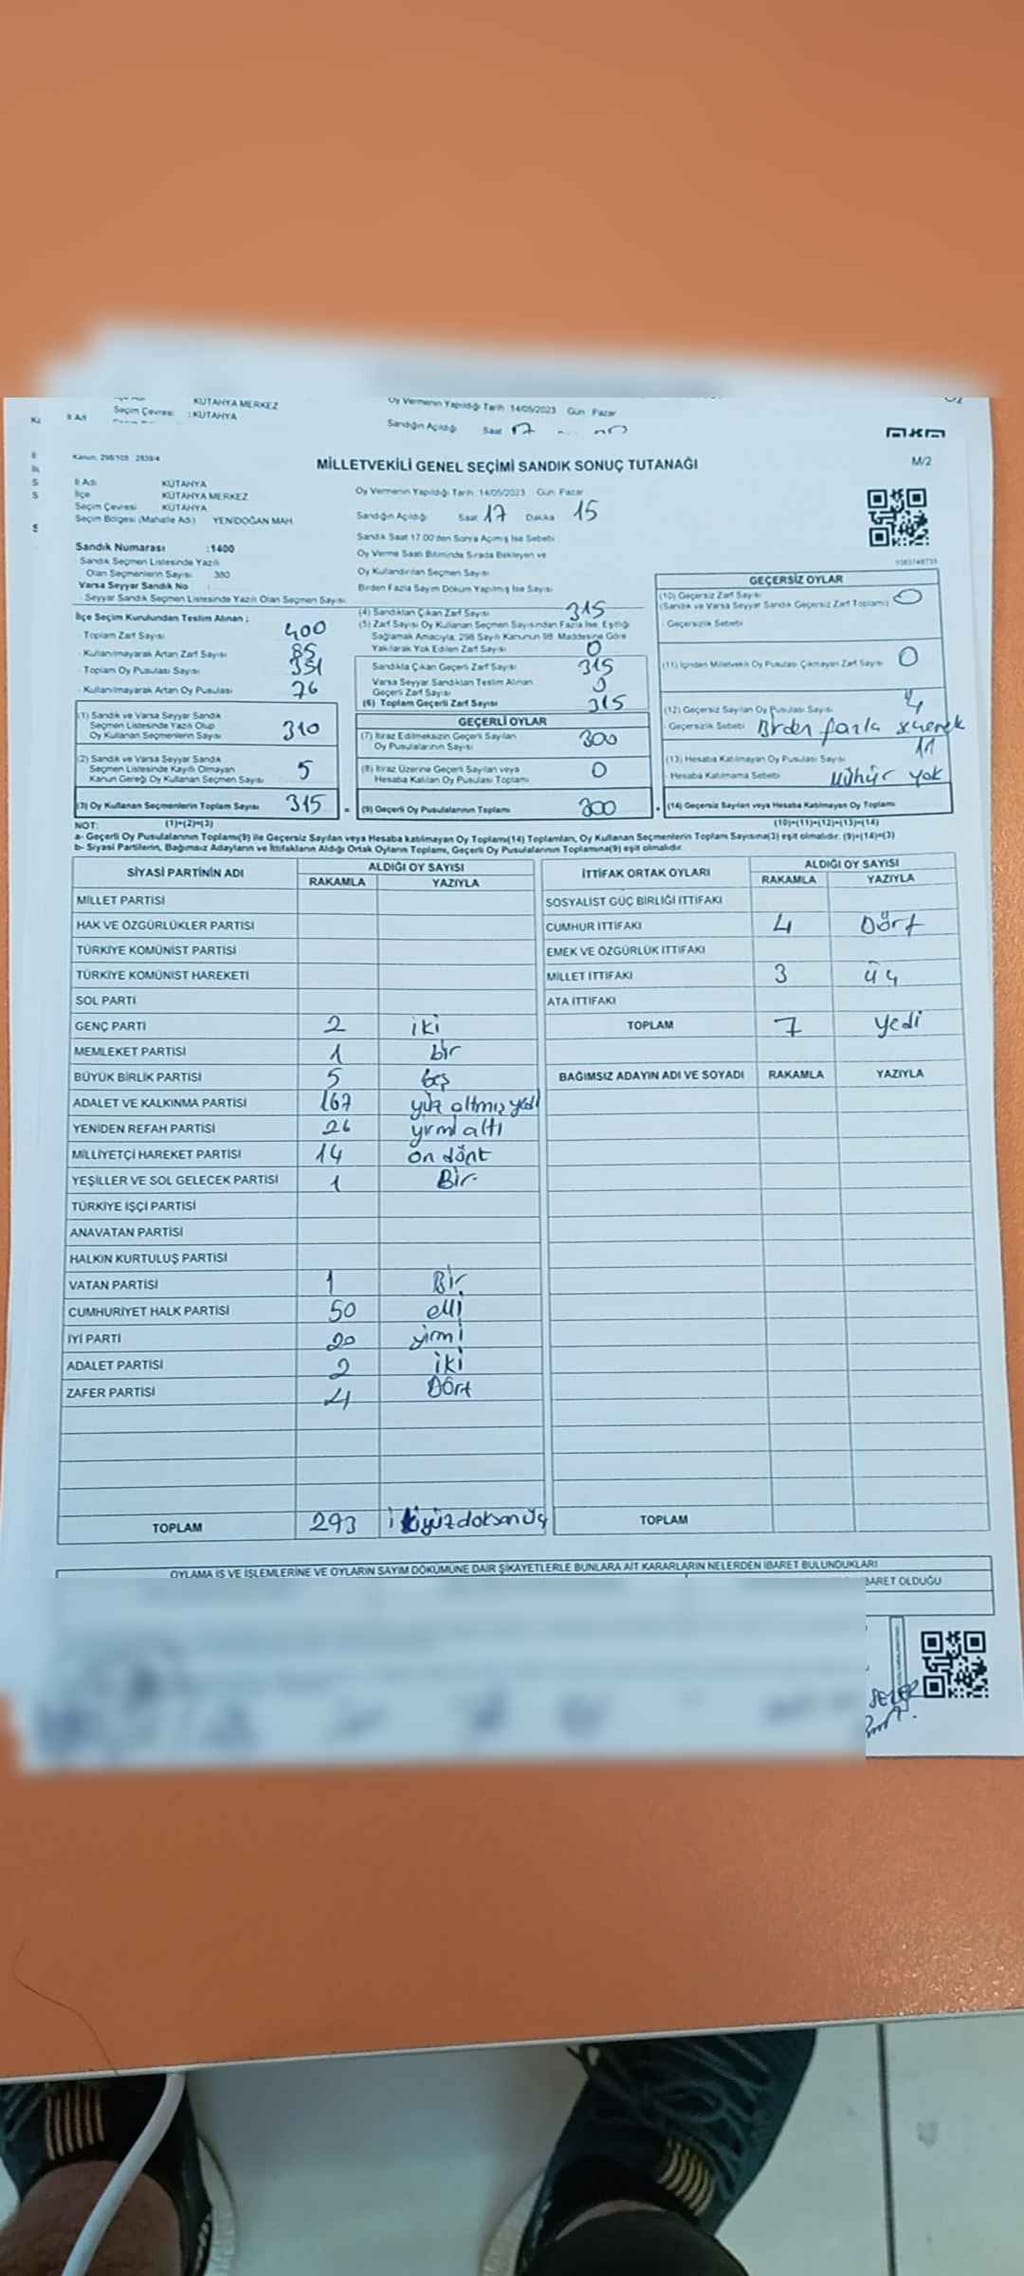 KÜTAHYA MERKEZ
Oy Vermenin Yapıldığı Tarih :14/05/2023 Gün Pazar
İl Adı Seçim Çevresi : KÜTAHYA
Sandığın Açıldığı Saat 17
M/2
MİLLETVEKİLİ GENEL SEÇİMİ SANDIK SONUÇ TUTANAĞI
İl Adı KÜTAHYA
İlçe KÜTAHYA MERKEZ
Seçim Çevresi KÜTAHYA
Seçim Bölgesi (Mahalle Adı) YENİDOĞAN MAH.
Oy Vermenin Yapıldığı Tarih :14/05/2023 Gün: Pazar
Sandığın Açıldığı Saat 17 Dakika 15
Sandık Saat 17.00'den Sonra Açılmış İse Sebebi
Oy Verme Saati Bitiminde Sırada Bekleyen ve
Oy Kullandırılan Seçmen Sayısı
Birden Fazla Sayım Döküm Yapılmış İse Sayısı
Sandık Numarası :1400
Sandık Seçmen Listesinde Yazılı
Olan Seçmenlerin Sayısı 380
Varsa Seyyar Sandık No
Seyyar Sandık Seçmen Listesinde Yazılı Olan Seçmen Sayısı:
İlçe Seçim Kurulundan Teslim Alınan :
Toplam Zarf Sayısı 400
Kullanılmayarak Artan Zarf Sayısı 85
Toplam Oy Pusulası Sayısı
Kullanılmayarak Artan Oy Pusulası 76
(1) Sandık ve Varsa Seyyar Sandık
Seçmen Listesinde Yazılı Olup
Oy Kullanan Seçmenlerin Sayısı 310
(2) Sandık ve Varsa Seyyar Sandık
Seçmen Listesinde Kayıtlı Olmayan
Kanun Gereği Oy Kullanan Seçmen Sayısı 5
(3) Oy Kullanan Seçmenlerin Toplam Sayısı 315
(4) Sandıktan Çıkan Zarf Sayısı 315
(5) Zarf Sayısı Oy Kullanan Seçmen Sayısından Fazla İse, Eşitliği
Sağlamak Amacıyla, 298 Sayılı Kanunun 98. Maddesine Göre
Yakılarak Yok Edilen Zarf Sayısı 0
Sandıkta Çıkan Geçerli Zarf Sayısı 315
Varsa Seyyar Sandıktan Teslim Alınan
Geçerli Zarf Sayısı 0
(6) Toplam Geçerli Zarf Sayısı 315
GEÇERLİ OYLAR
(7) İtiraz Edilmeksizin Geçerli Sayılan
Oy Pusulalarının Sayısı 300
(8) İtiraz Üzerine Geçerli Sayılan veya
Hesaba Katılan Oy Pusulası Toplamı 0
(9) Geçerli Oy Pusulalarının Toplamı 300
GEÇERSİZ OYLAR
(10) Geçersiz Zarf Sayısı
(Sandık ve Varsa Seyyar Sandık Geçersiz Zarf Toplamı) 0
Geçersizlik Sebebi
(11) İçinden Milletvekili Oy Pusulası Çıkmayan Zarf Sayısı 0
(12) Geçersiz Sayılan Oy Pusulası Sayısı 4
Geçersizlik Sebebi Birden fazla
(13) Hesaba Katılmayan Oy Pusulası Sayısı 11
Hesaba Katılmama Sebebi Mühür yok
(14) Geçersiz Sayılan veya Hesaba Katılmayan Oy Toplamı
NOT: (1)+(2)=(3)
(10)+(11)+(12)+(13)=(14)
a- Geçerli Oy Pusulalarının Toplamı(9) ile Geçersiz Sayılan veya Hesaba katılmayan Oy Toplamı(14) Toplamları, Oy Kullanan Seçmenlerin Toplam Sayısına(3) eşit olmalıdır. (9)+(14)=(3)
b- Siyasi Partilerin, Bağımsız Adayların ve İttifakların Aldığı Ortak Oyların Toplamı, Geçerli Oy Pusulalarının Toplamına(9) eşit olmalıdır.
SİYASİ PARTİNİN ADI ALDIĞI OY SAYISI
RAKAMLA YAZIYLA
MİLLET PARTİSİ
HAK VE ÖZGÜRLÜKLER PARTİSİ
TÜRKİYE KOMÜNİST PARTİSİ
TÜRKİYE KOMÜNİST HAREKETİ
SOL PARTİ
GENÇ PARTİ 2 iki
MEMLEKET PARTİSİ 1 bir
BÜYÜK BİRLİK PARTİSİ 5 beş
ADALET VE KALKINMA PARTİSİ 167 yüz altmış yedi
YENİDEN REFAH PARTİSİ 26 yirmi altı
MİLLİYETÇİ HAREKET PARTİSİ 14 on dört
YEŞİLLER VE SOL GELECEK PARTİSİ 1 Bir
TÜRKİYE İŞÇİ PARTİSİ
ANAVATAN PARTİSİ
HALKIN KURTULUŞ PARTİSİ
VATAN PARTİSİ 1 Bir
CUMHURİYET HALK PARTİSİ 50 elli
İYİ PARTİ 20 yirmi
ADALET PARTİSİ 2 iki
ZAFER PARTİSİ 4 Dört
TOPLAM 293 ikiyüzdoksanüç
İTTİFAK ORTAK OYLARI ALDIĞI OY SAYISI
RAKAMLA YAZIYLA
SOSYALİST GÜÇ BİRLİĞİ İTTİFAKI
CUMHUR İTTİFAKI 4 Dört
EMEK VE ÖZGÜRLÜK İTTİFAKI
MİLLET İTTİFAKI 3 üç
ATA İTTİFAKI
TOPLAM 7 yedi
BAĞIMSIZ ADAYIN ADI VE SOYADI RAKAMLA YAZIYLA
TOPLAM
OYLAMA İŞ VE İŞLEMLERİNE VE OYLARIN SAYIM DÖKÜMÜNE DAİR ŞİKAYETLERLE BUNLARA AİT KARARLARIN NELERDEN İBARET BULUNDUKLARI
BARET OLDUĞU
SEZER